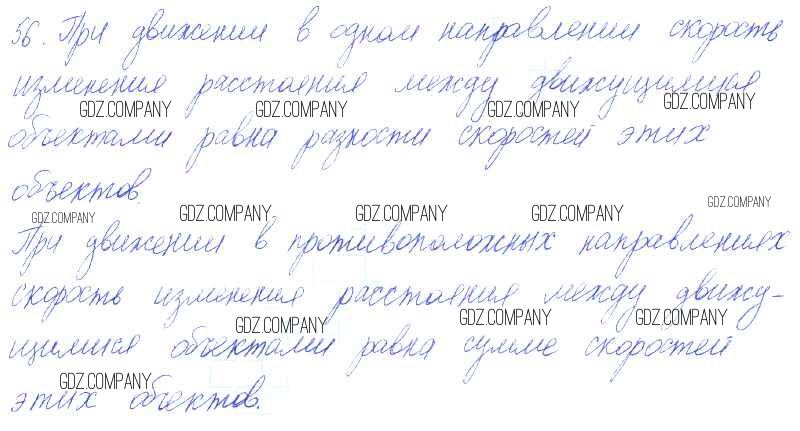 56. При движении в одном направлении скорость
изменения расстояния между движущимися
GDZ.COMPANY GDZ.COMPANY GDZ.COMPANY GDZ.COMPANY
объектами равна разности скоростей этих
объектов.
GDZ.COMPANY GDZ.COMPANY GDZ.COMPANY GDZ.COMPANY GDZ.COMPANY
При движении в противоположных направлениях
скорость изменения расстояния между движу-
GDZ.COMPANY GDZ.COMPANY GDZ.COMPANY
щимися объектами равна сумме скоростей
GDZ.COMPANY
этих объектов.